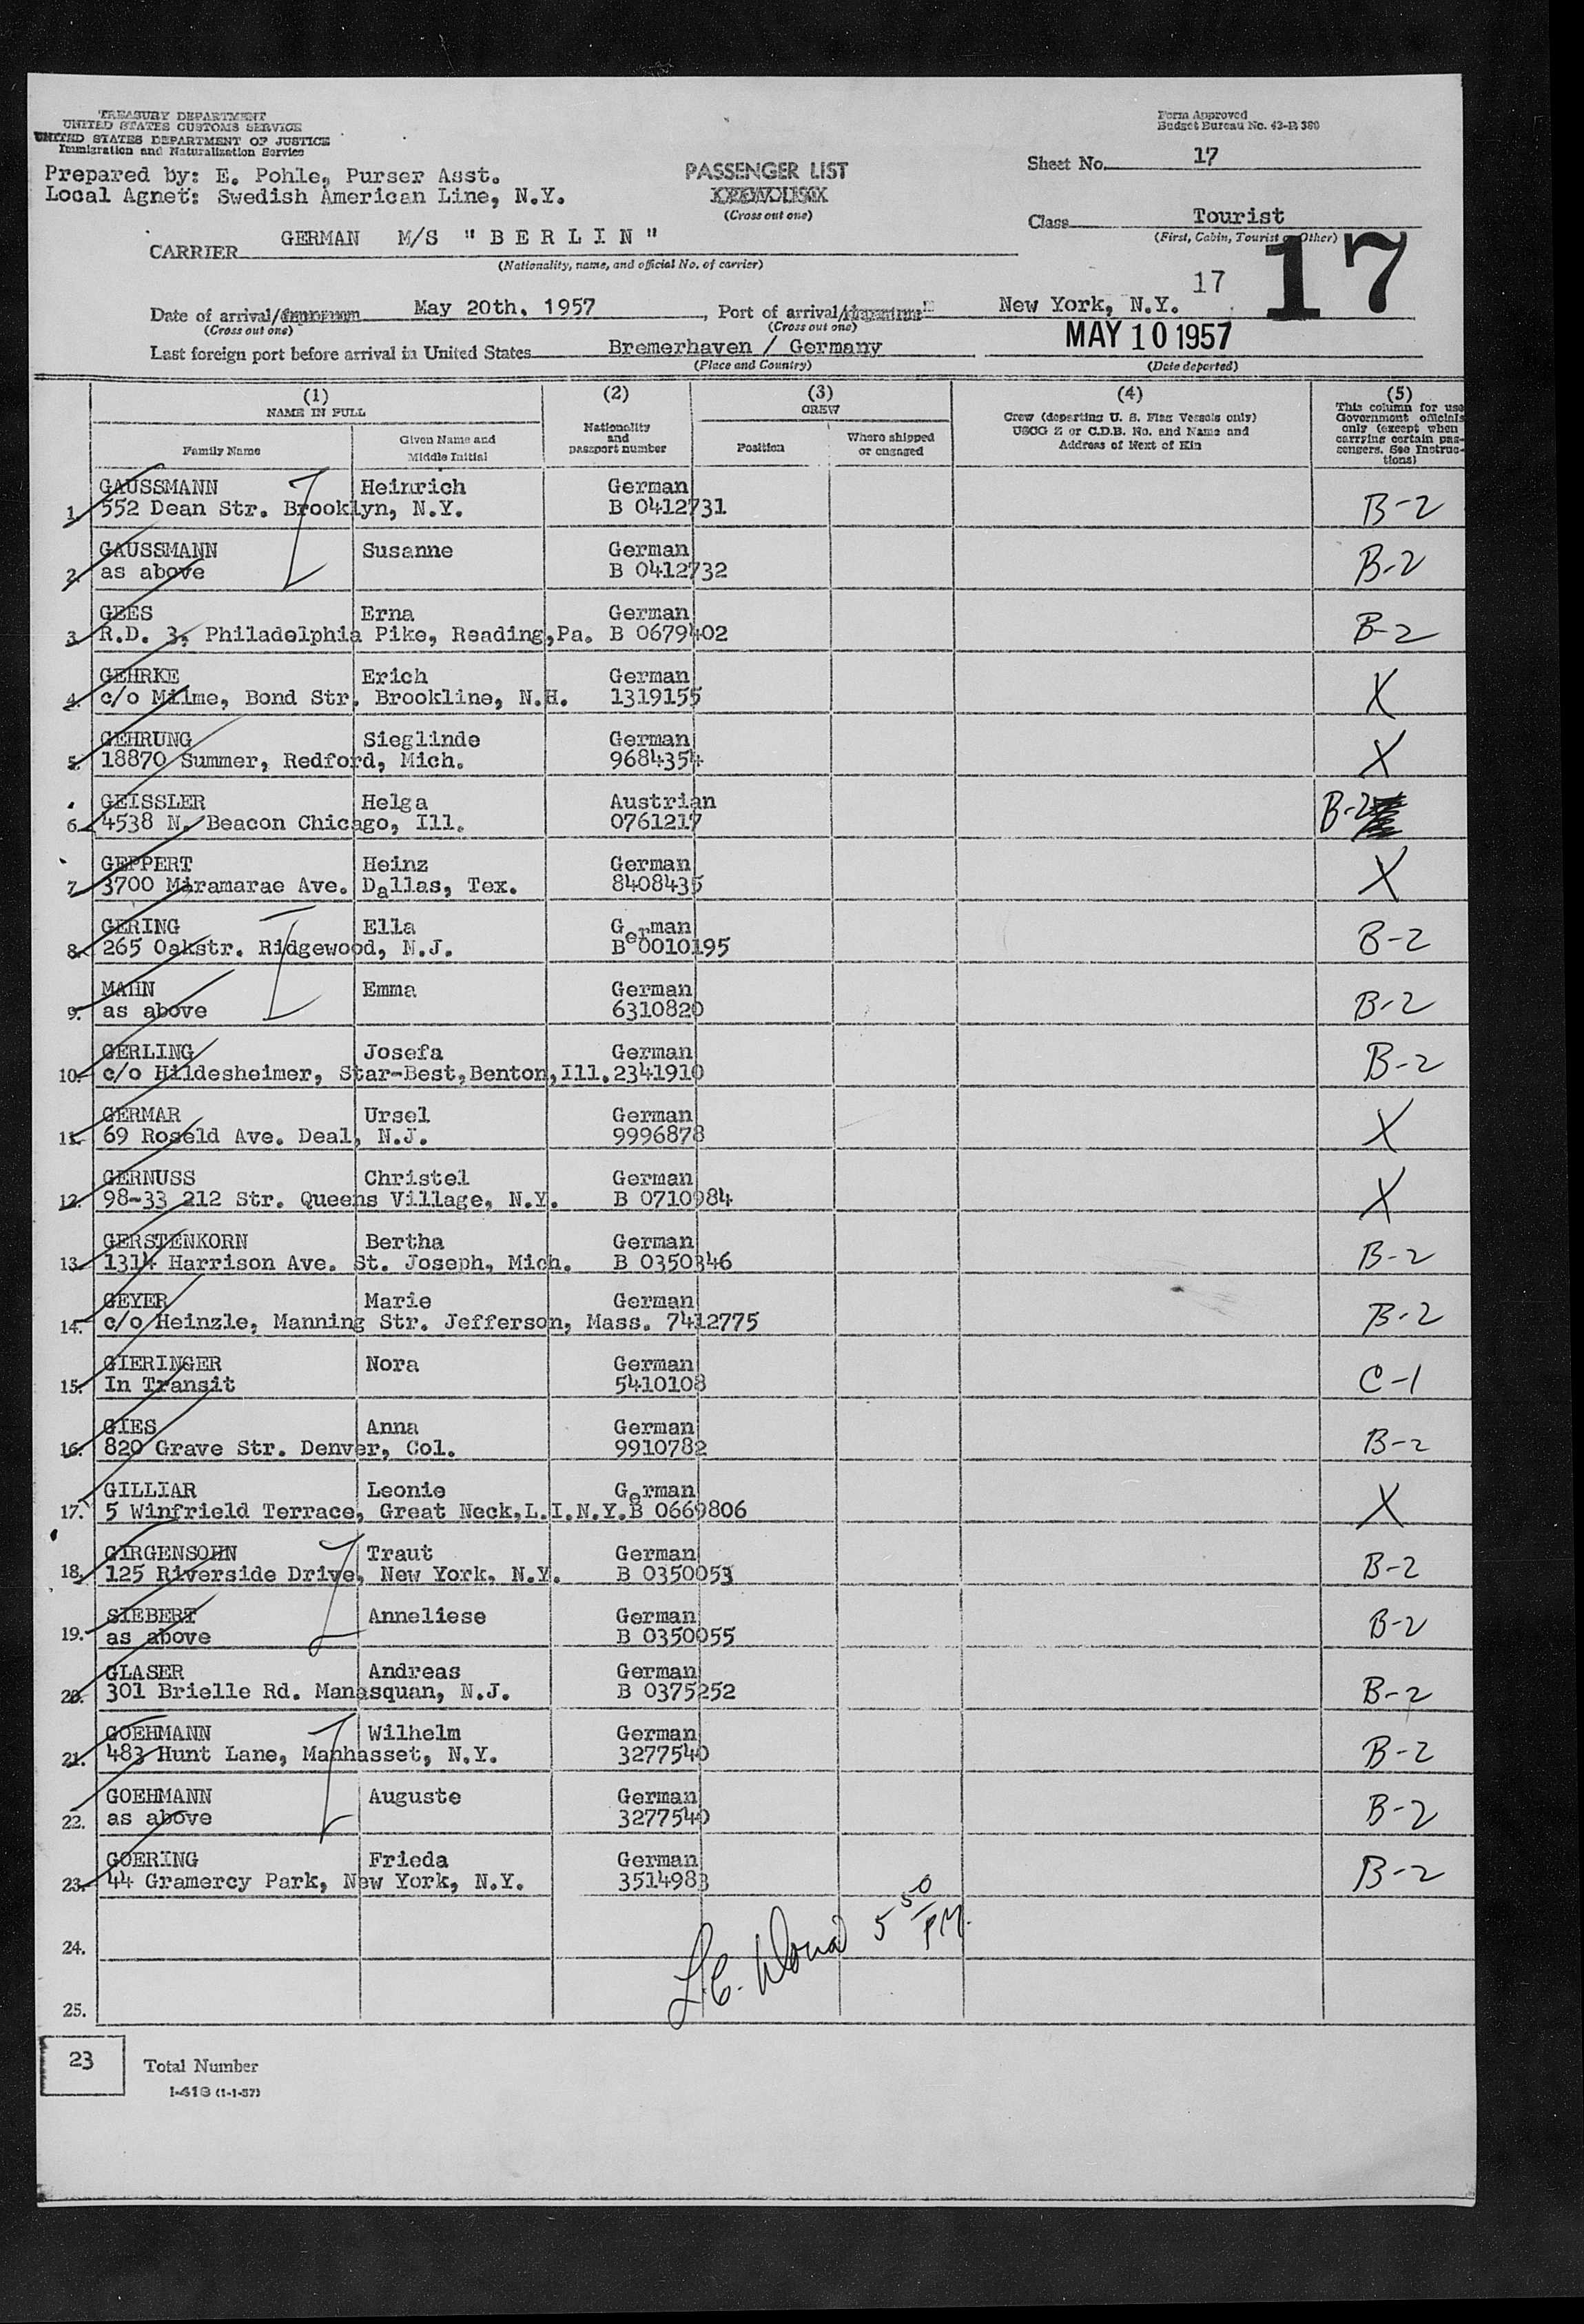 TREASURY DEPARTMENT
UNITED STATES CUSTOMS SERVICE
UNITED STATES DEPARTMENT OF JUSTICE
Immigration and Naturalization Service
Form Approved
Budget Bureau No. 43-R 380
Prepared by: E. Pohle, Purser Asst.
Local Agnet: Swedish American Line, N.Y.
PASSENGER LIST
(Cross out one)
Sheet No. 17
Class Tourist
(First, Cabin, Tourist or Other)
CARRIER GERMAN M/S "BERLIN"
(Nationality, name, and official No. of carrier)
17
17
Date of arrival/ May 20th. 1957, Port of arrival/ New York, N.Y.
(Cross out one) (Cross out one)
MAY 10 1957
Last foreign port before arrival in United States Bremerhaven / Germany
(Place and Country) (Date departed)
(1) (2) (3) (4) (5)
NAME IN FULL
Family Name
Given Name and Middle Initial
Nationality and passport number
CREW
Position
Where shipped or engaged
Crew (departing U. S. Flag Vessels only)
USCG Z or C.D.B. No. and Name and
Address of Next of Kin
This column for use
Government officials
only (except when
carrying certain pas-
sengers. See Instruc-
tions)
1. GAUSSMANN Heinrich German
552 Dean Str. Brooklyn, N.Y. B 0412731 B-2
2. GAUSSMANN Susanne German
as above B 0412732 B-2
3. GEES Erna German
R.D. 3, Philadelphia Pike, Reading,Pa. B 0679402 B-2
4. GEHRKE Erich German
c/o Milme, Bond Str. Brookline, N.H. 1319155 X
5. GEHRUNG Sieglinde German
18870 Summer, Redford, Mich. 9684354 X
6. GEISSLER Helga Austrian
4538 N. Beacon Chicago, Ill. 0761217 B-2
7. GEPPERT Heinz German
3700 Miramarae Ave. Dallas, Tex. 8408435 X
8. GERING Ella German
265 Oakstr. Ridgewood, N.J. B 0010195 B-2
9. MAHN Emma German
as above 6310820 B-2
10. GERLING Josefa German
c/o Hildesheimer, Star-Best,Benton,Ill. 2341910 B-2
11. GERMAR Ursel German
69 Roseld Ave. Deal, N.J. 9996878 X
12. GERNUSS Christel German
98-33 212 Str. Queens Village, N.Y. B 0710984 X
13. GERSTENKORN Bertha German
1314 Harrison Ave. St. Joseph, Mich. B 0350346 B-2
14. GEYER Marie German
c/o Heinzle, Manning Str. Jefferson, Mass. 7412775 B-2
15. GIERINGER Nora German
In Transit 5410108 C-1
16. GIES Anna German
820 Grave Str. Denver, Col. 9910782 B-2
17. GILLIAR Leonie German
5 Winfrield Terrace, Great Neck,L.I.N.Y. B 0669806 X
18. GIRGENSOHN Traut German
125 Riverside Drive, New York, N.Y. B 0350053 B-2
19. SIEBERT Anneliese German
as above B 0350055 B-2
20. GLASER Andreas German
301 Brielle Rd. Manasquan, N.J. B 0375252 B-2
21. GOEHMANN Wilhelm German
483 Hunt Lane, Manhasset, N.Y. 3277540 B-2
22. GOEHMANN Auguste German
as above 3277540 B-2
23. GOERING Frieda German
44 Gramercy Park, New York, N.Y. 3514983 B-2
5 50 PM.
24.
25.
23 Total Number
I-418 (1-1-57)